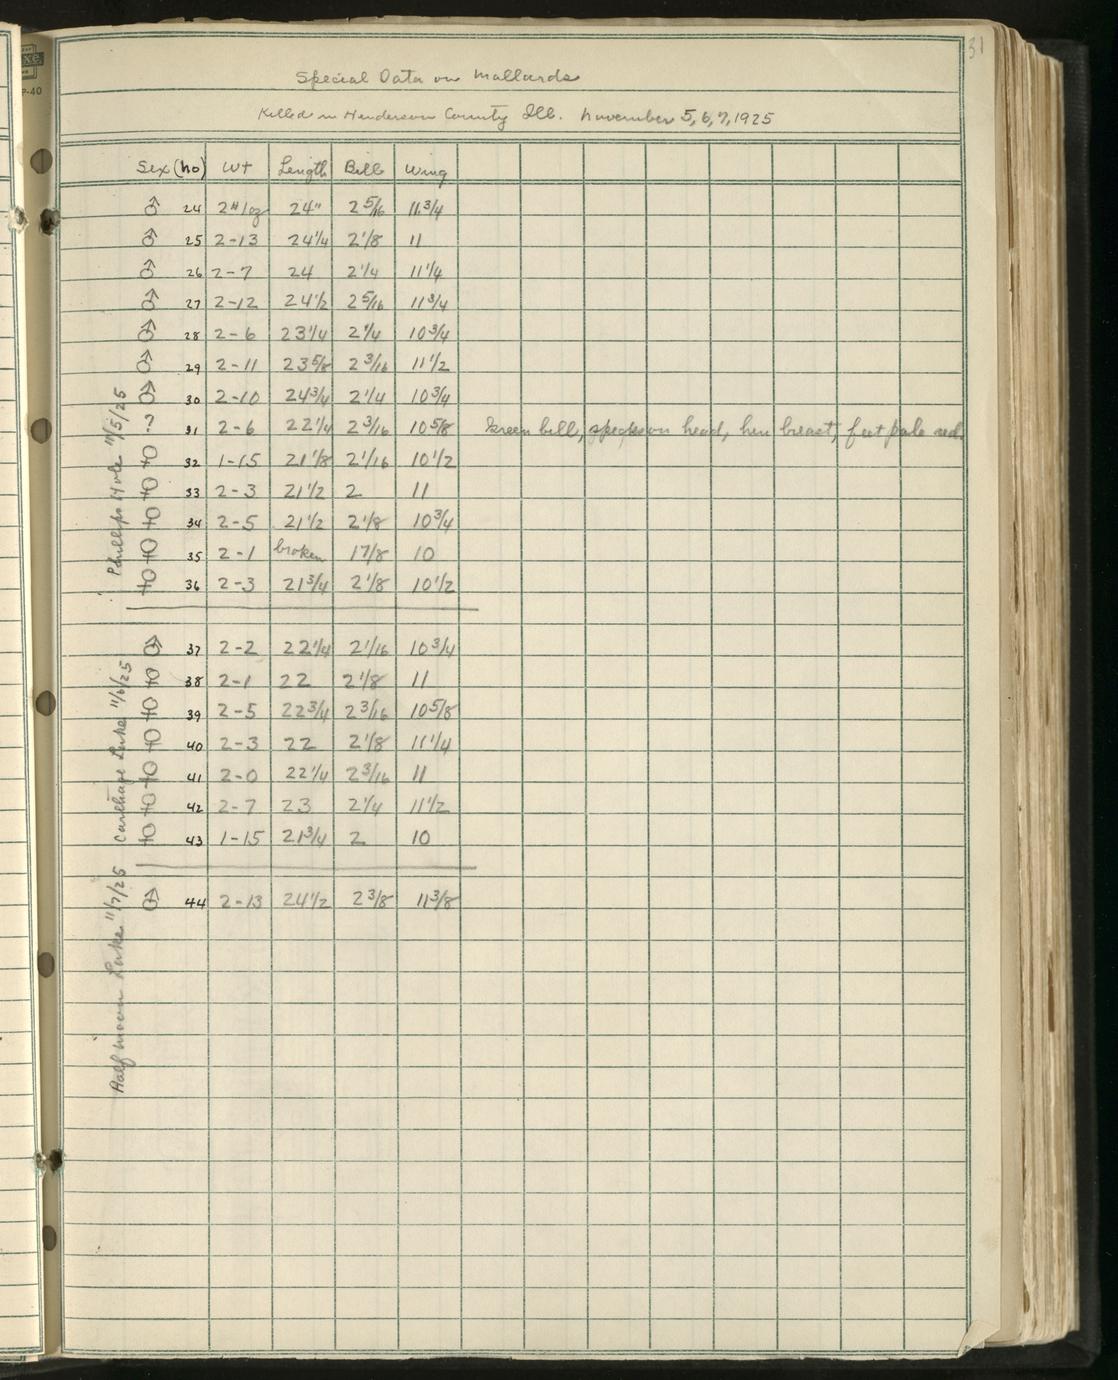 31
Special Data on Mallards
Killed in Henderson County Ill. November 5, 6, 7, 1925
Sex (no) Wt Length Bill Wing
Phillips Hole 11/5/25
♂ 24 2# 1oz 24" 2 5/16 11 3/4
♂ 25 2-13 24 1/4 2 1/8 11
♂ 26 2-7 24 2 1/4 11 1/4
♂ 27 2-12 24 1/2 2 5/16 11 3/4
♂ 28 2-6 23 1/4 2 1/4 10 3/4
♂ 29 2-11 23 5/8 2 3/16 11 1/2
♂ 30 2-10 24 3/4 2 1/4 10 3/4
? 31 2-6 22 1/4 2 3/16 10 5/8 Green bill, specks on head, hen breast, feet pale red.
♀ 32 1-15 21 1/8 2 1/16 10 1/2
♀ 33 2-3 21 1/2 2 11
♀ 34 2-5 21 1/2 2 1/8 10 3/4
♀ 35 2-1 broken 1 7/8 10
♀ 36 2-3 21 3/4 2 1/8 10 1/2
Carthage Lake 11/6/25
♂ 37 2-2 22 1/4 2 1/16 10 3/4
♀ 38 2-1 22 2 1/8 11
♀ 39 2-5 22 3/4 2 3/16 10 5/8
♀ 40 2-3 22 2 1/8 11 1/4
♀ 41 2-0 22 1/4 2 3/16 11
♀ 42 2-7 23 2 1/4 11 1/2
♀ 43 1-15 21 3/4 2 10
Half moon Lake 11/7/25
♂ 44 2-13 24 1/2 2 3/8 11 3/8